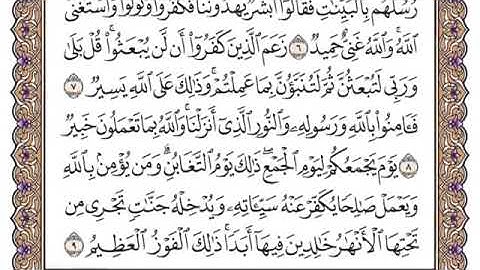 رُسُلُهُم بِالْبَيِّنَاتِ فَقَالُوا أَبَشَرٌ يَهْدُونَنَا فَكَفَرُوا وَتَوَلَّوا وَّاسْتَغْنَى
اللَّهُ وَاللَّهُ غَنِيٌّ حَمِيدٌ ٦ زَعَمَ الَّذِينَ كَفَرُوا أَن لَّن يُبْعَثُوا قُلْ بَلَى
وَرَبِّي لَتُبْعَثُنَّ ثُمَّ لَتُنَبَّؤُنَّ بِمَا عَمِلْتُمْ وَذَلِكَ عَلَى اللَّهِ يَسِيرٌ ٧
فَآمِنُوا بِاللَّهِ وَرَسُولِهِ وَالنُّورِ الَّذِي أَنزَلْنَا وَاللَّهُ بِمَا تَعْمَلُونَ خَبِيرٌ
٨ يَوْمَ يَجْمَعُكُمْ لِيَوْمِ الْجَمْعِ ذَلِكَ يَوْمُ التَّغَابُنِ وَمَن يُؤْمِن بِاللَّهِ
وَيَعْمَلْ صَالِحًا يُكَفِّرْ عَنْهُ سَيِّئَاتِهِ وَيُدْخِلْهُ جَنَّاتٍ تَجْرِي مِن
تَحْتِهَا الْأَنْهَارُ خَالِدِينَ فِيهَا أَبَدًا ذَلِكَ الْفَوْزُ الْعَظِيمُ ٩